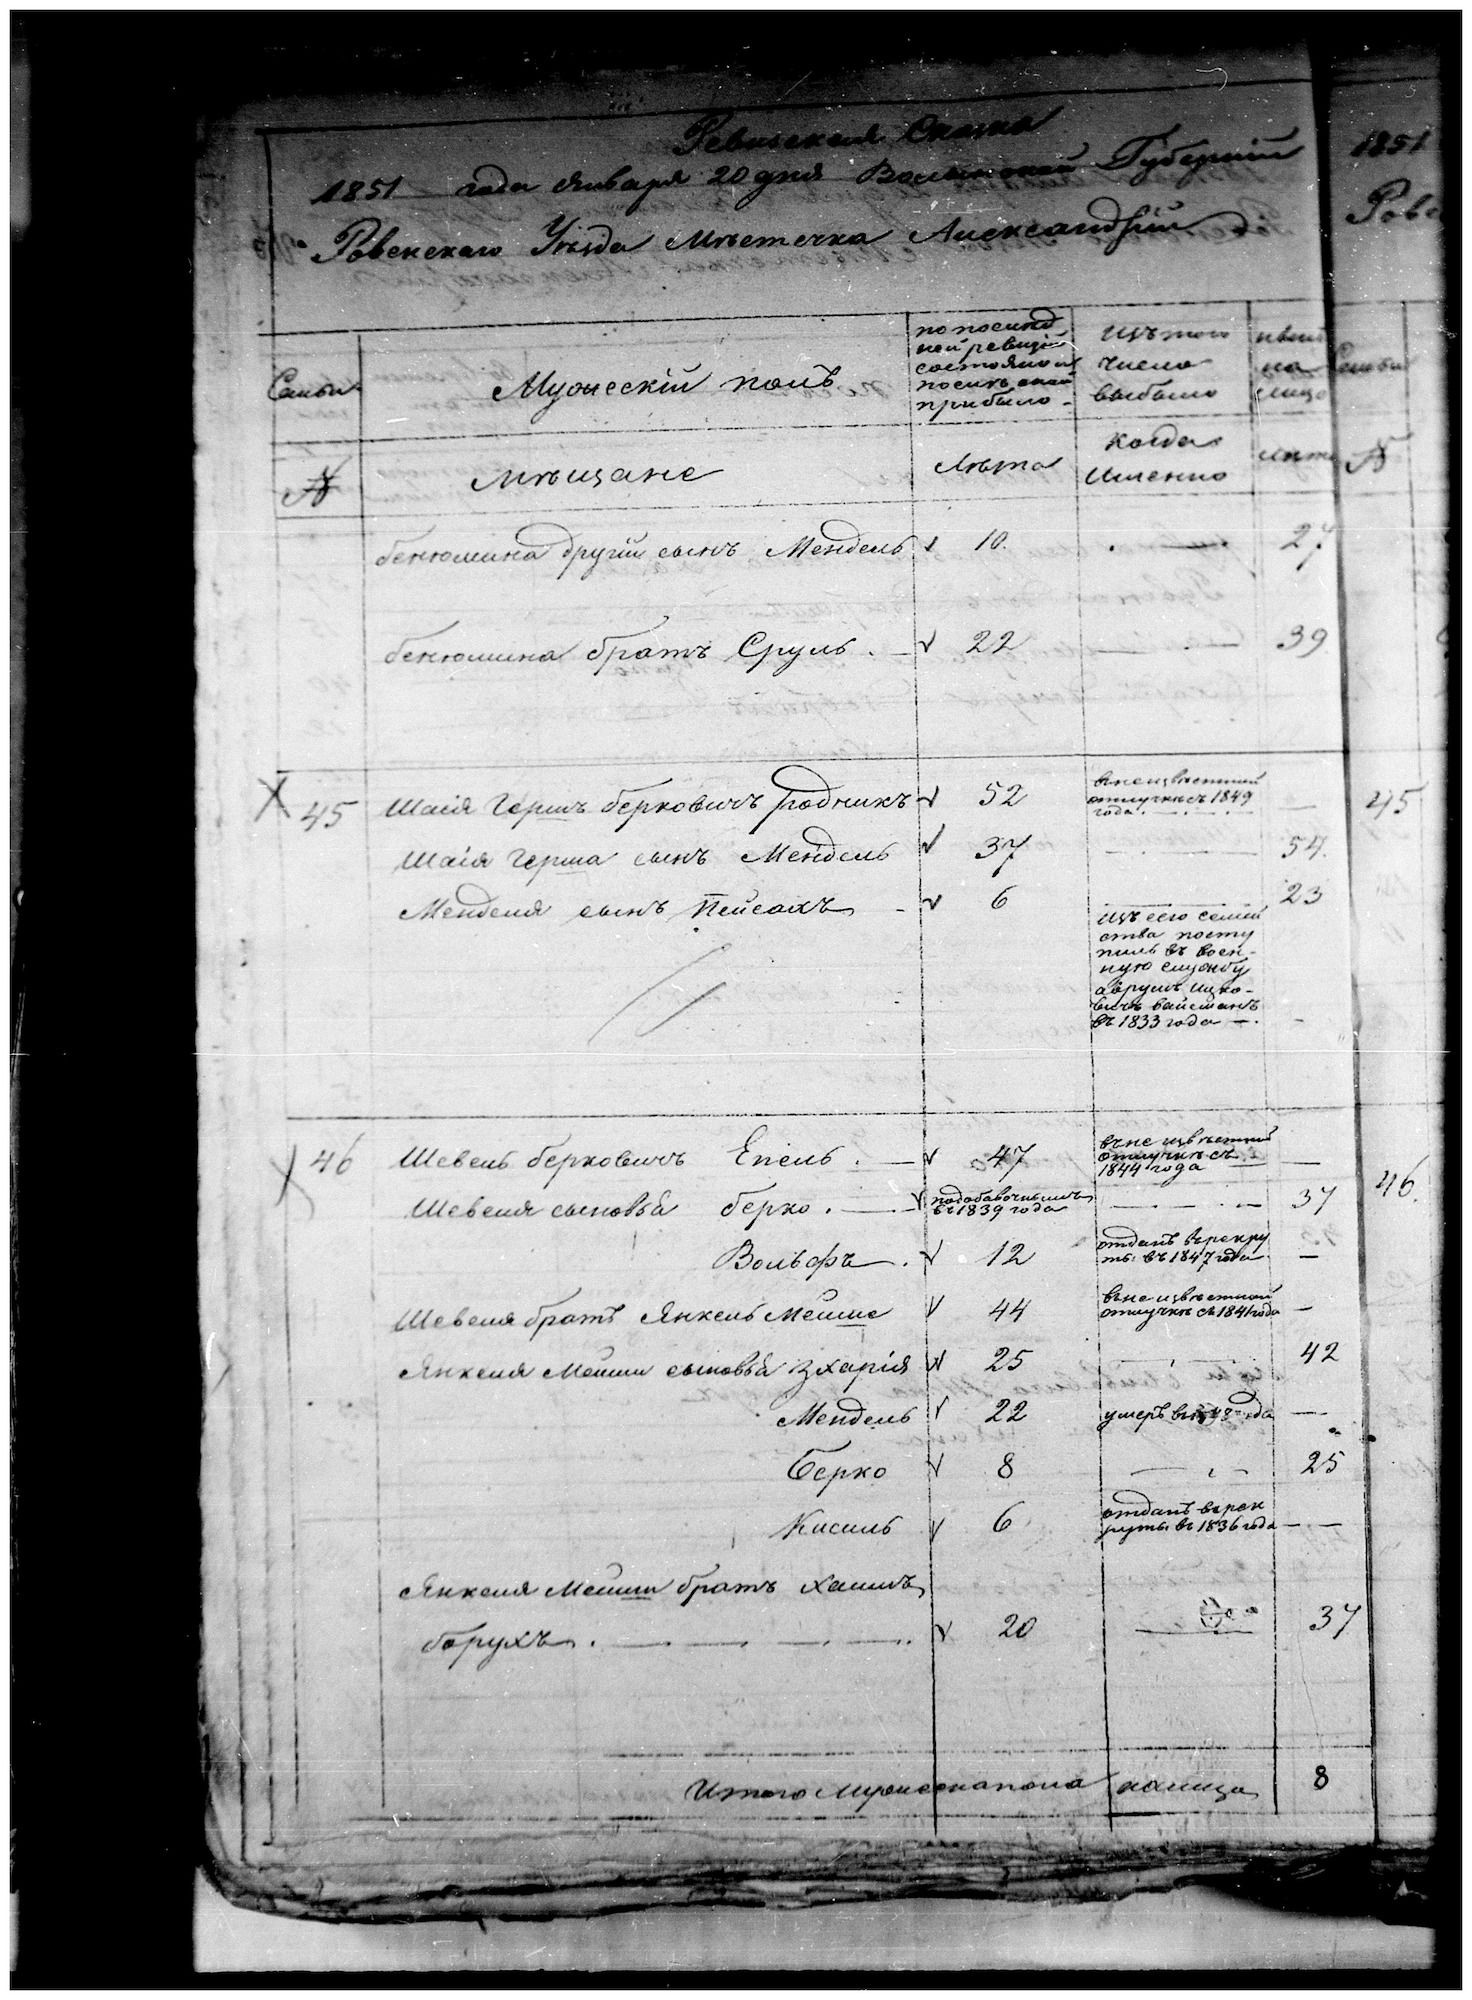 Ревизская Сказка
1851 года Января 20 дня Волынской Губерніи
Ровенскаго Уезда Мѣстечка Александріи
Семьи
Мужескій полъ
по послед
ней ревизіи
состояло и
послѣ оной
прибыло
Изъ того
числа
выбыло
на
лицо
№
мѣщане
Лѣта
когда
Именно
Лѣта
бенюмина другій сынъ Мендель 10. 27
бенюмина братъ Сруль. 22 39
45 Шаія Гершъ берковичъ родникъ 52 въ неизвѣстной
отлучкѣ съ 1849
года
Шаія Герша сынъ Мендель 37 54.
Менделя сынъ Пейсахъ 6 23
Изъ сего семей
ства посту
пилъ въ воен-
ную службу
аврумъ ицко-
вичъ вайсманъ
въ 1833 года
46 Шевель берковичъ Епель. 47 въ не извѣстной
отлучкѣ съ
1844 года
Шевеля сыновья берко. подобавочнымъ
въ 1839 года 37
Вольфъ. 12 отданъ въ рекру
ты въ 1847 года
Шевеля братъ Янкель Мейше 44 въ не извѣстной
отлучкѣ съ 1841 года
Янкеля Мейши сыновья Зхарія 25 42
Мендель 22 умеръ
Берко 8 25
Кисиль 6 отданъ в рек
руты въ 1836 года
Янкеля Мейши братъ Хаимъ
борухъ. 20 37
Итого Мужеска пола налицо 8
1851
Рове
Семьи
№
45
46.